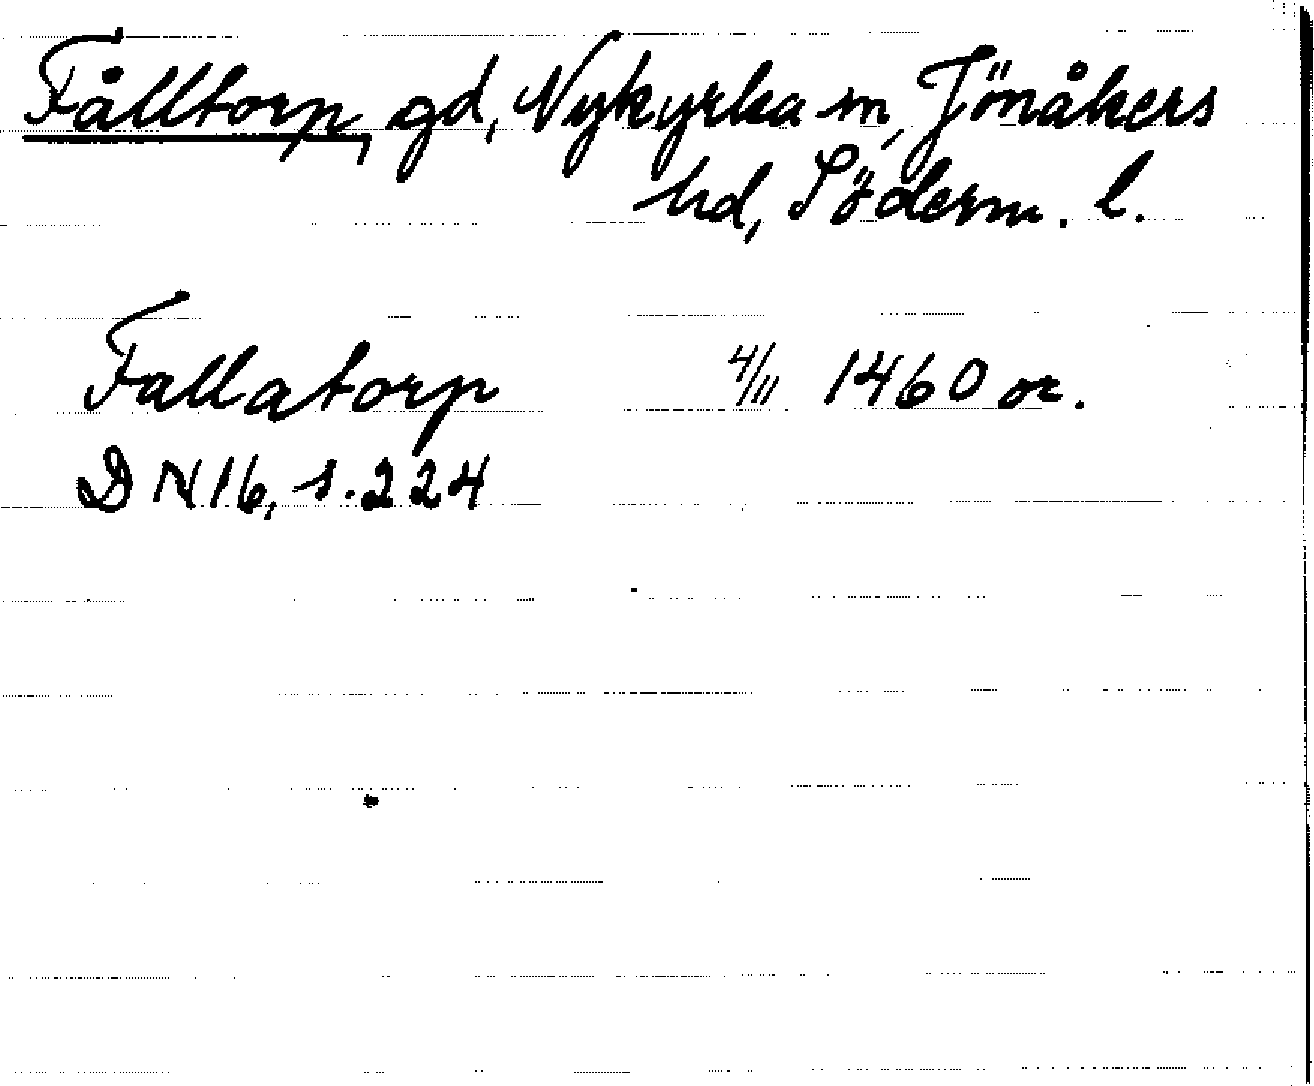 Fålltorp, gd, Nykyrka sn, Jönåkers
hd, Söderm. l.
Fallatorp 4/11 1460 or.
DN 16, s. 224